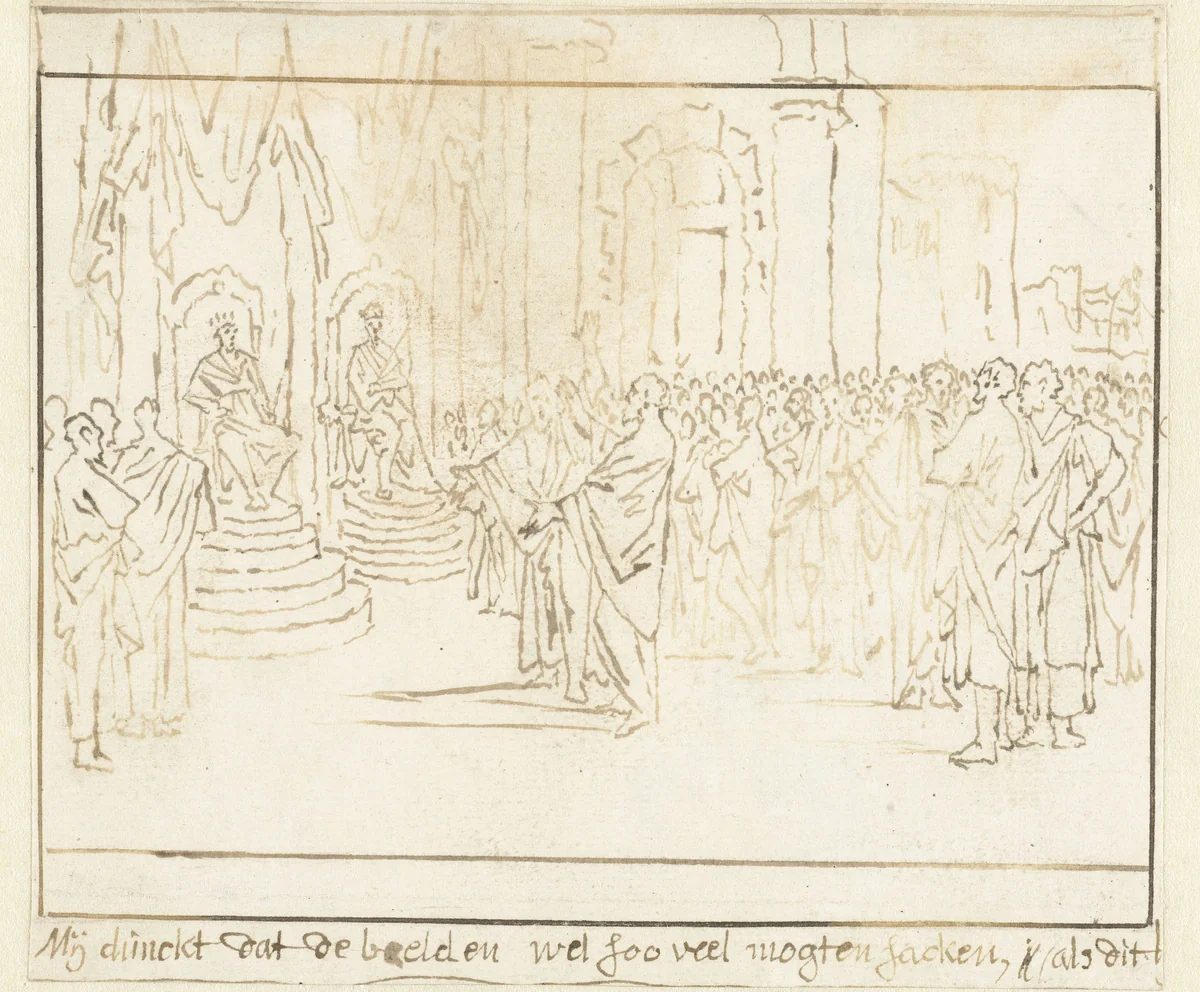 Mÿ dunckt dat de beelden wel soo veel mogten sacken, (als dit